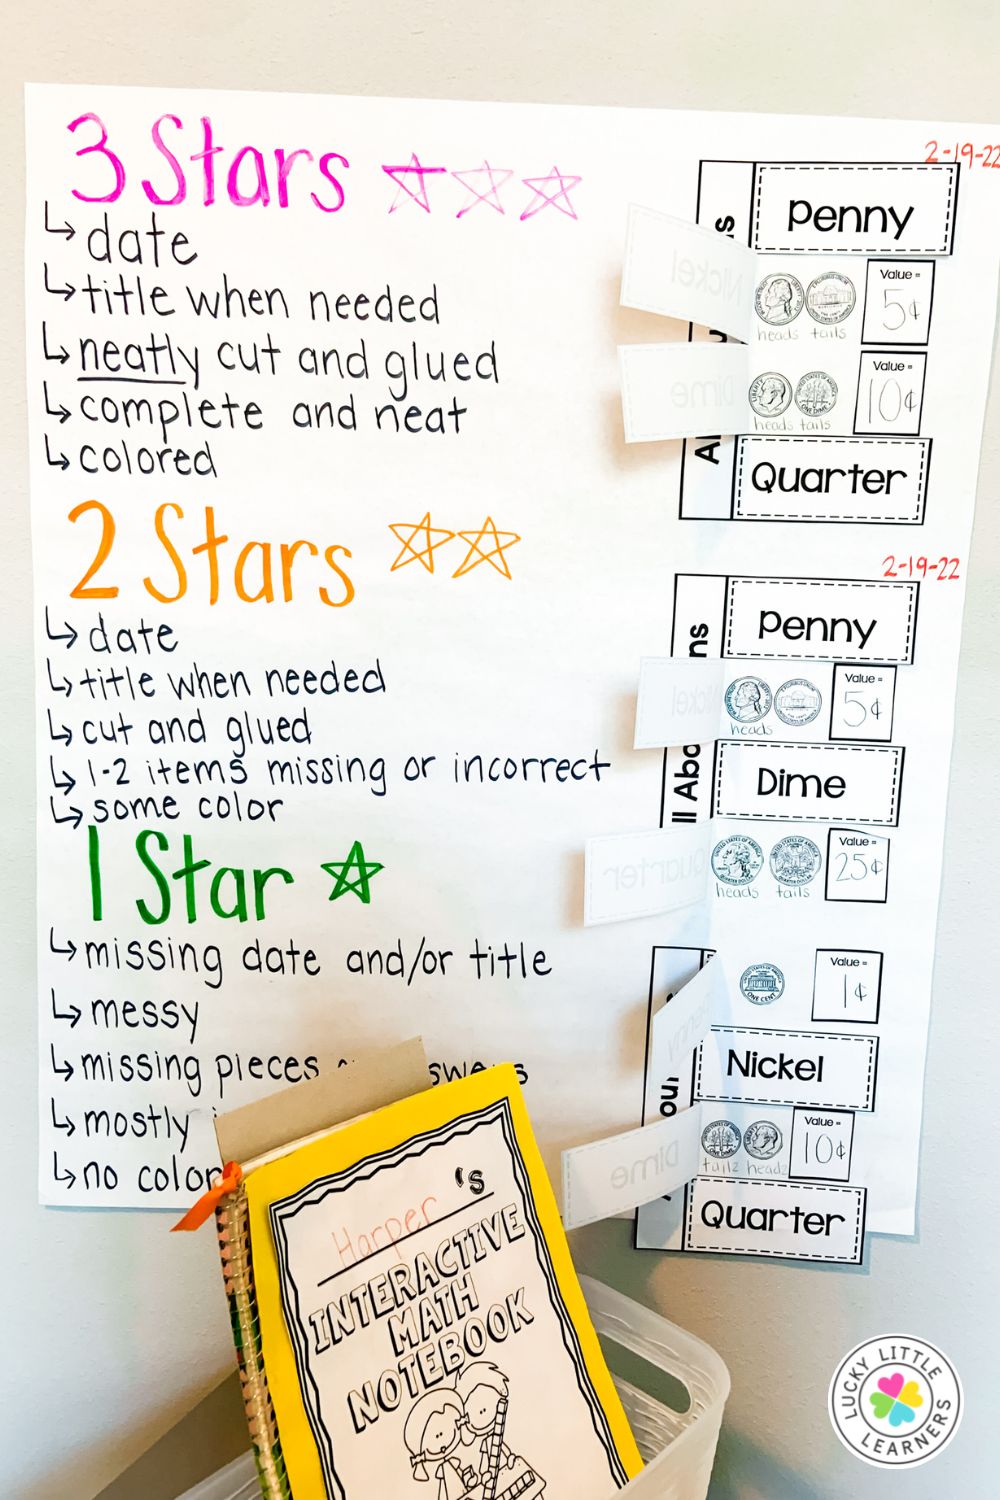 3 Stars
↳ date
↳ title when needed
↳ neatly cut and glued
↳ complete and neat
↳ colored
2 Stars
↳ date
↳ title when needed
↳ cut and glued
↳ 1-2 items missing or incorrect
↳ some color
1 Star
↳ missing date and/or title
↳ messy
↳ missing pieces
↳ mostly
↳ no color
2-19-22
Penny
Nickel
Value =
5¢
heads tails
Dime
Value =
10¢
heads tails
Quarter
2-19-22
Penny
Nickel
Value =
5¢
heads
Dime
Quarter
Value =
25¢
heads tails
Value =
1¢
ONE CENT
Nickel
Dime
Value =
10¢
tailz headz
Quarter
Harper's
INTERACTIVE
MATH
NOTEBOOK
LUCKY LITTLE
LEARNERS